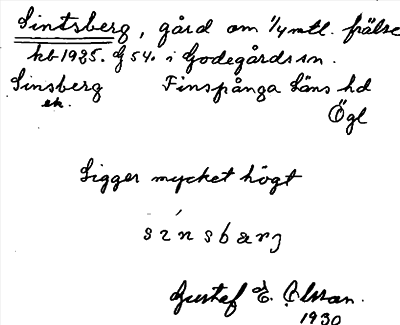 Sintsberg, gård om 1/4 mtl. frälse
hb 1925. G 54. i Godegårds sn.
Sinsberg Finspånga läns hd
ek. Ögl
Ligger mycket högt
sínsbærj
Gustaf E. Olsson.
1930